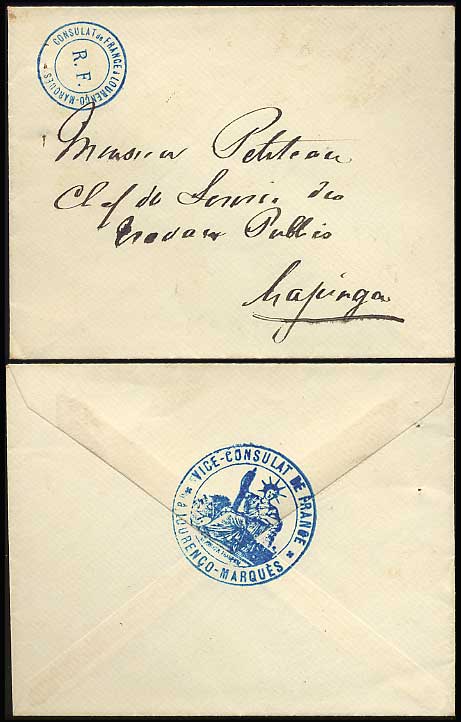 CONSULAT de FRANCE à LOURENÇO-MARQUES
R. F.
Monsieur Petiteau
Chef du Service des
Travaux Publics
VICE-CONSULAT DE FRANCE
à LOURENÇO-MARQUÈS